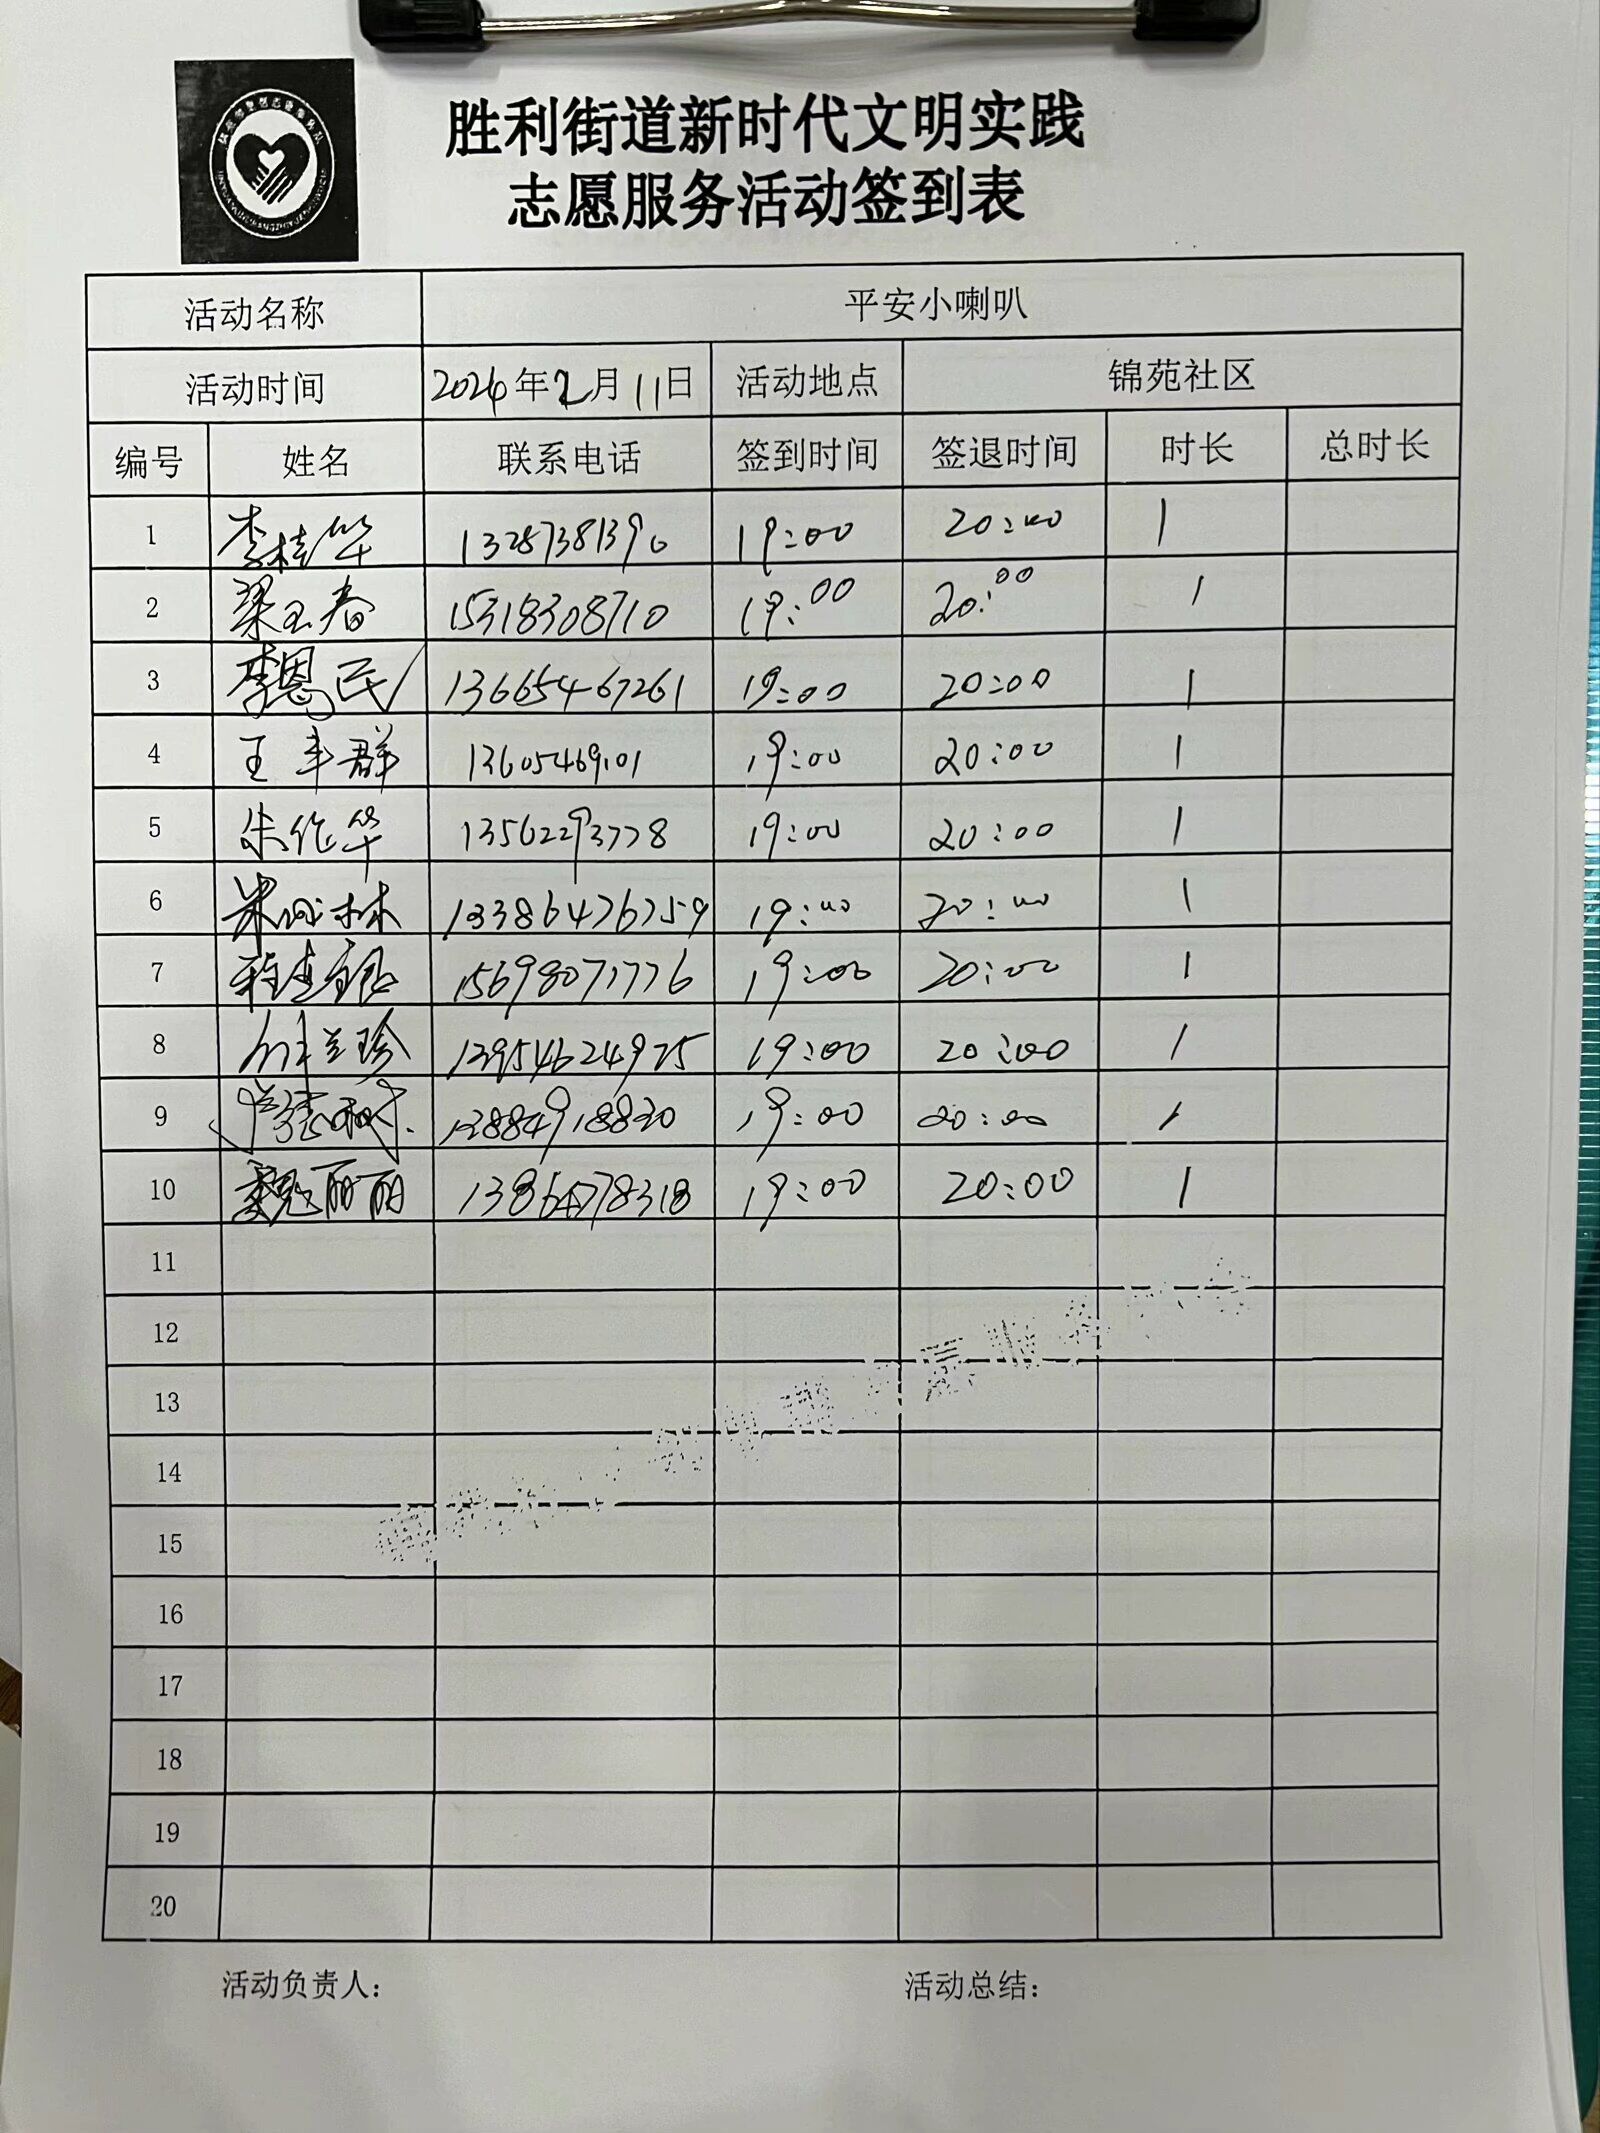 胜利街道新时代文明实践
志愿服务活动签到表
活动名称 平安小喇叭
活动时间 2024年2月11日 活动地点 锦苑社区
编号 姓名 联系电话 签到时间 签退时间 时长 总时长
1 李桂华 13287381390 19:00 20:00 1
2 梁玉春 15318308710 19:00 20:00 1
3 李恩民 13665467261 19:00 20:00 1
4 王丰群 13605469101 19:00 20:00 1
5 朱作华 13562293778 19:00 20:00 1
6 林 13386476759 19:00 20:00 1
7 15698071776 19:00 20:00 1
8 兰珍 13954624975 19:00 20:00 1
9 13884918830 19:00 20:00 1
10 魏丽丽 13864778318 19:00 20:00 1
11
12
13
14
15
16
17
18
19
20
活动负责人: 活动总结: